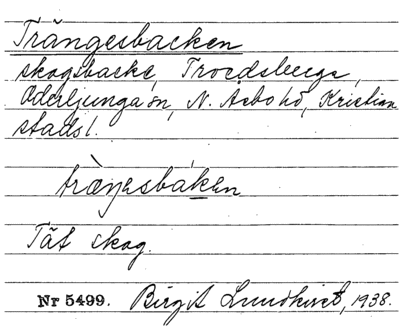 Trängesbacken
skogsbacke, Troedsberga,
Oderljunga sn, N. Asbo hd, Kristian
stads l.
träŋəsbakən
Tät skog.
Nr 5499. Birgit Lundkvist, 1938.